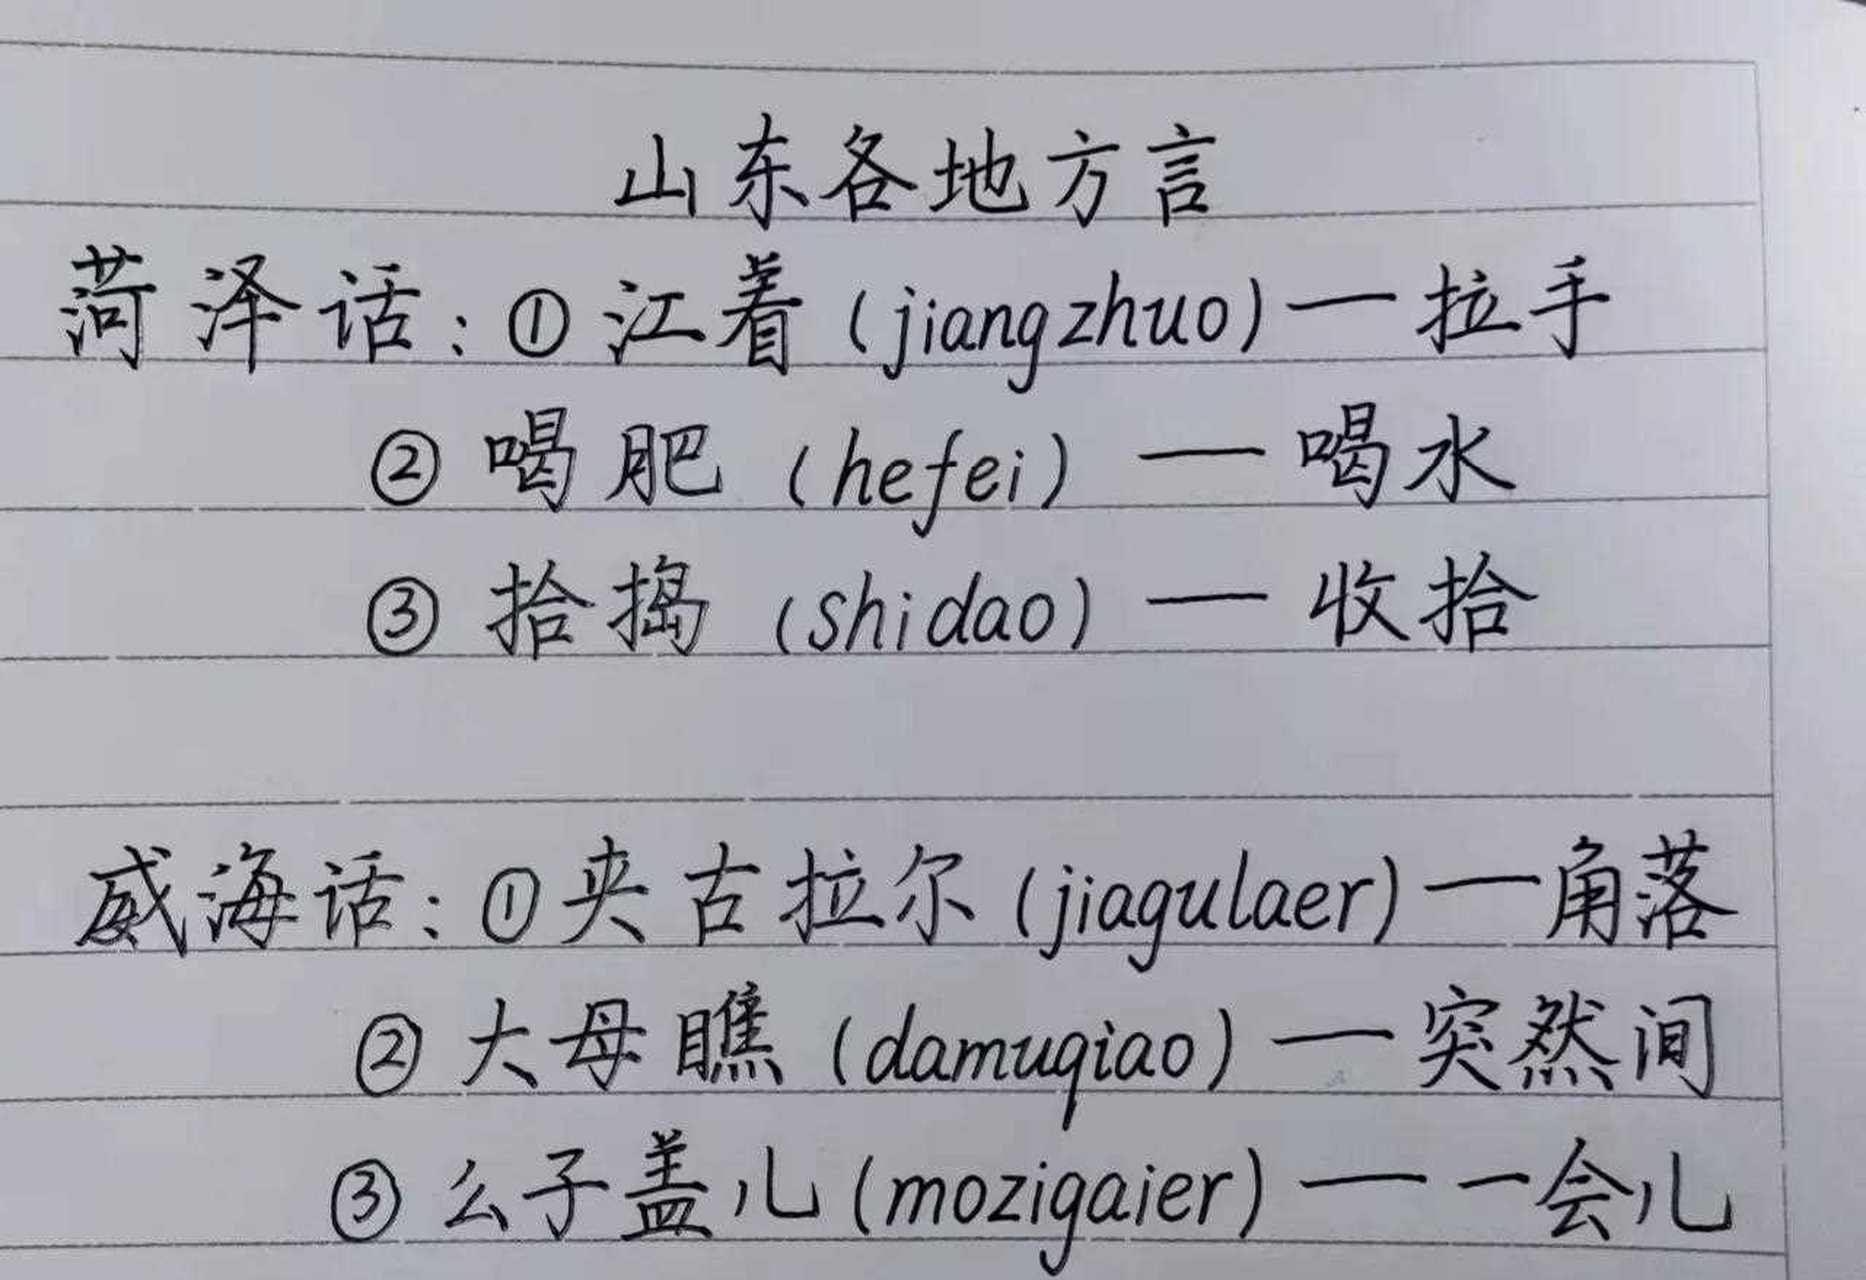 山东各地方言
菏泽话：① 江着（jiangzhuo）— 拉手
② 喝肥（hefei）— 喝水
③ 拾捣（shidao）— 收拾
威海话：① 夹古拉尔（jiagulaer）— 角落
② 大母瞧（damuqiao）— 突然间
③ 么子盖儿（mozigaier）— 一会儿